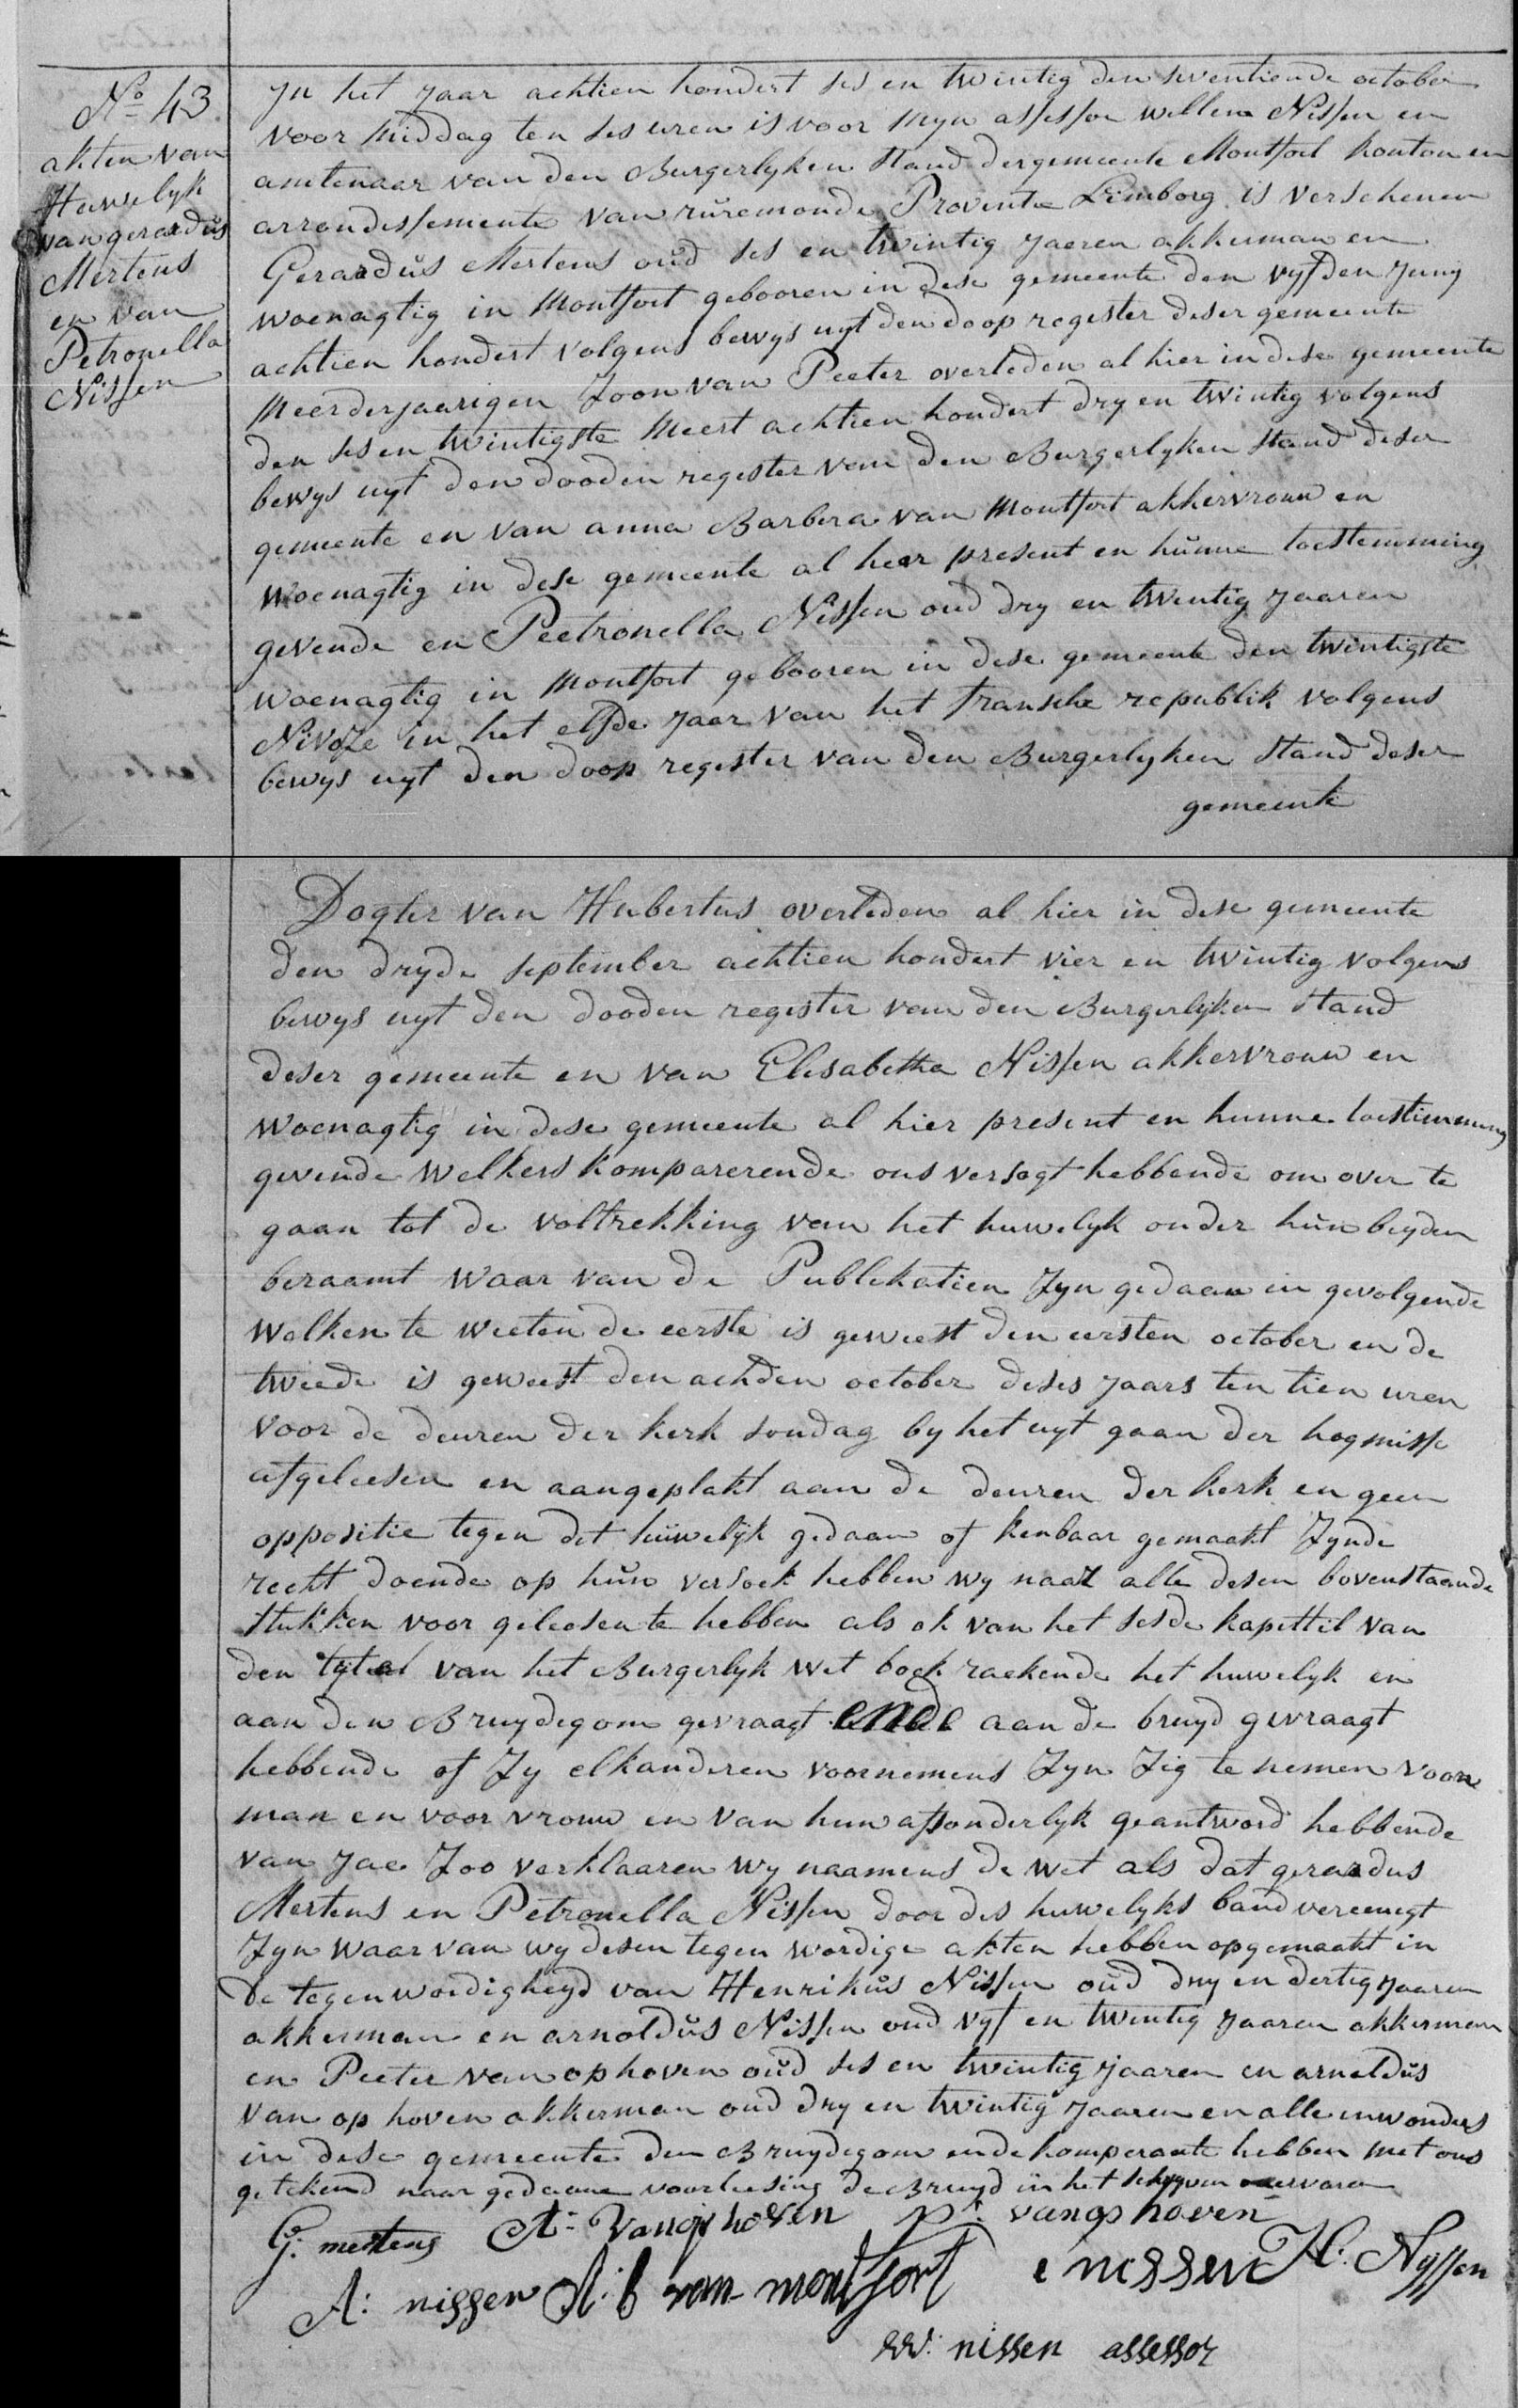 No 43
akten van
Huwelyk
van gerardŭs
Mertens
en van
Petronella
Nissen
In het jaar achtien hondert ses en twintig den seventiende october
voor middag ten ses uren is voor myn assessor willem Nissen en
amtenaar van den Burgerlyken stand der gemeente Montfort konton en
arrondissemente van rŭremonde Provente Limborg is verschenen
Gerardŭs Mertens oŭd ses en twintig jaeren akkerman en
woenagtig in Montfort gebooren in dese gemeente den vyfden juny
achtien hondert volgens bewys uyt den doop register deser gemeente
meerderjaarigen Zoon van Peeter overleden al hier in dese gemeente
den ses en twintigste meert achtien hondert dry en twintig volgens
bewys uyt den dooden register van den Burgerlyken stand deser
gemeente en van anna Barbera van Montfort akkervrouw en
woenagtig in dese gemeente al hier present en hŭnne toestemming
gevende en Peetronella Nissen oud dry en twentig jaaren
woenagtig in Montfort gebooren in dese gemeente den twintigste
Nivoze in het elfde jaar van het fransche republik volgens
bewys uyt den doop register van den Burgerlyken stand deser
gemeente
Dogter van Hubertus overleden al hier in dese gemeente
den dryde september achtien hondert vier en twintig volgens
bewys uyt den dooden register van den Burgerlyken stand
deser gemeente en van Elisabetha Nissen akkervrouw en
woenagtig in dese gemeente al hier present en hunne toestimming
gevende welkers komparerende ons versogt hebbende om over te
gaan tot de voltrekking van het huwelyk onder hŭn beyden
beraamt waar van de Publikatien Zyn gedaan in gevolgende
welken te weeten de eerste is geweest den eersten october en de
tweede is geweest den achtden october deses jaars ten tien uren
voor de deuren der kerk sondag by het uyt gaan der hogmisse
afgeleesen en aangeplakt aan de deuren der kerk en geen
oppositie tegen det hŭwelyk gedaan of kenbaar gemaakt Zynde
recht doende op hŭn versoek hebben wy naar alle desen bovenstaande
stukken voor geleesen te hebben als ok van het sesde kapittel van
den tytel van het Burgerlyk wet boek raekende het huwelyk en
aan den Bruydegom gevraagt ende aan de bruyd gevraagt
hebbende of Zy elkanderen voornemens Zyn Zig te nemen voor
man en voor vrouw en van hun afsonderlyk geantword hebbende
van jae Zoo verklaaren wy naamens de wet als dat gerardus
Mertens en Petronella Nissen door des huwelyks band vereenigt
Zyn waar van wy desen tegen wordige akten hebben opgemaakt in
de tegenwordigheyd van Henrikŭs Nissen oŭd dry en dertig jaaren
akkerman en arnoldŭs Nissen oud vyf en twintig jaaren akkerman
en Peeter van ophoven oŭd ses en twintig jaaren en arnoldŭs
van op hoven akkerman oud dry en twintig jaaren en alle inwonders
in dese gemeente den Bruydegom ende komperante hebben met ons
getekend naar gedaane voorleesing de Bruyd in het schryven
G: mertens A: vanophoven P: vanophoven
A: nissen A: b van montfort e nissen H: Nyssen
W: nissen assessor